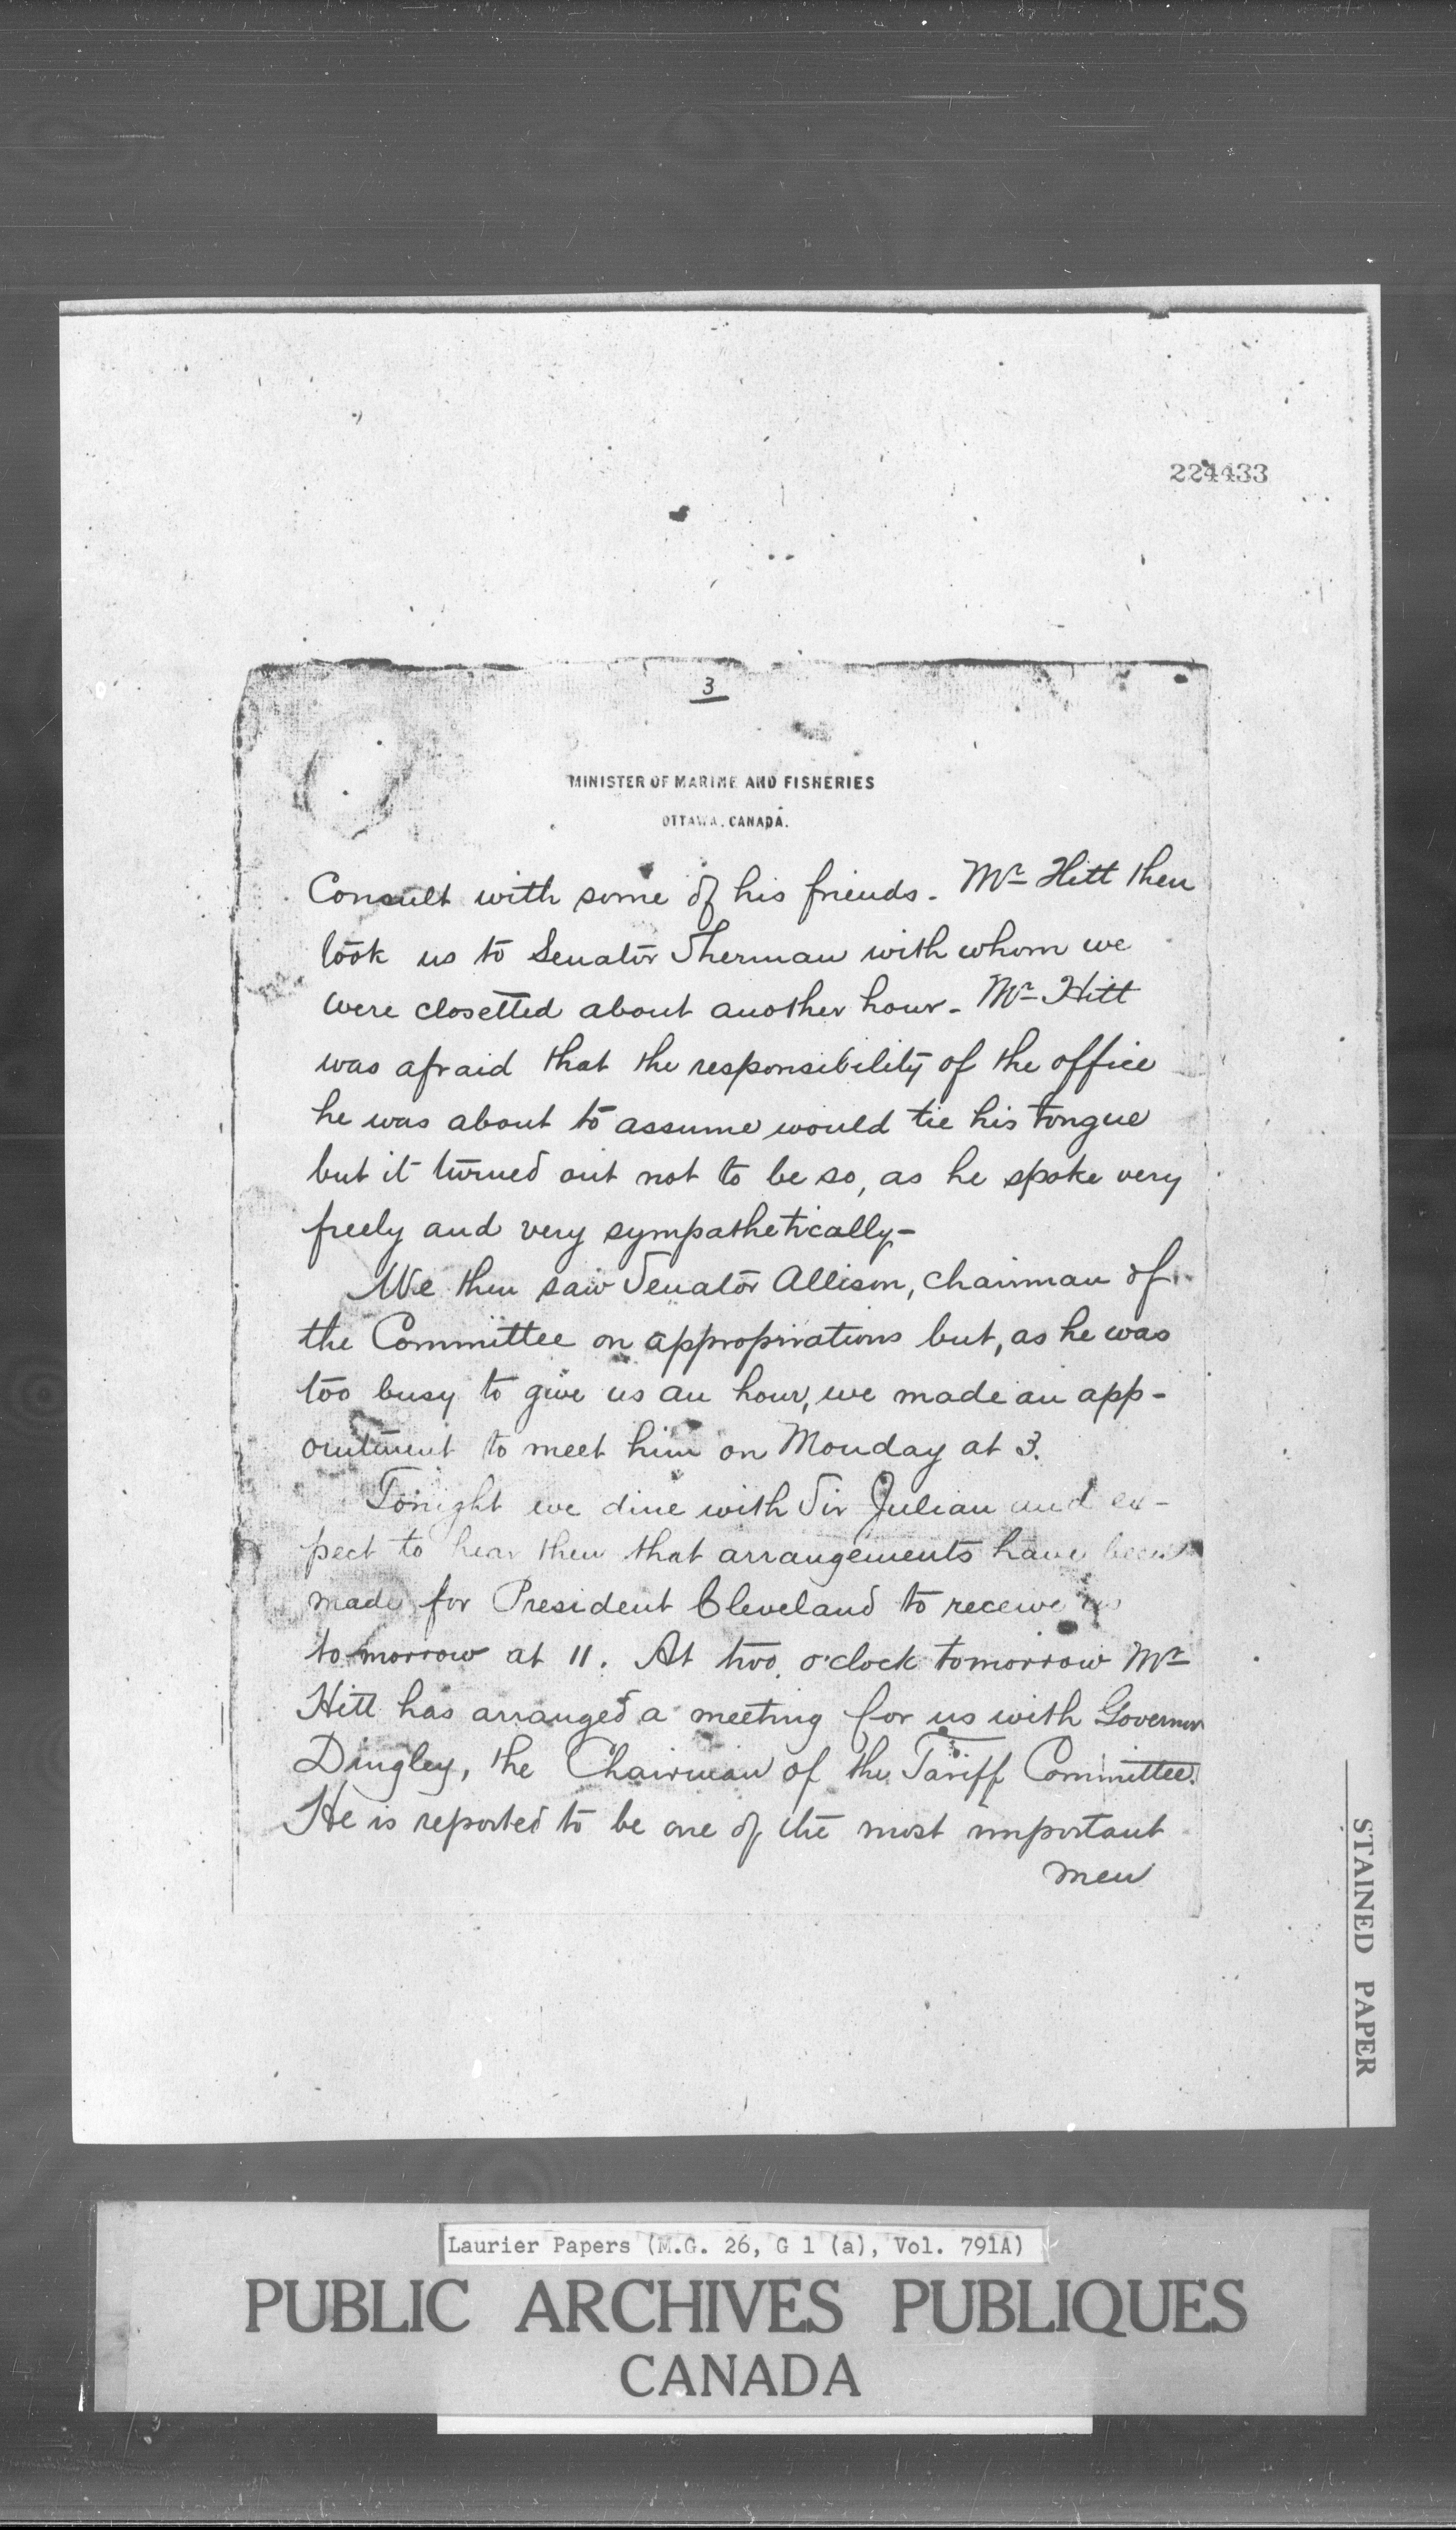 224433
3
MINISTER OF MARINE AND FISHERIES
OTTAWA. CANADA.
Consult with some of his friends. Mr Hitt then
took us to Senator Sherman with whom we
were closetted about another hour. Mr Hitt
was afraid that the responsibility of the office
he was about to assume would tie his tongue
but it turned out not to be so, as he spoke very
freely and very sympathetically-
We then saw Senator Allison, Chairman of
the Committee on appropirations but, as he was
too busy to give us an hour, we made an app-
ointment to meet him on Monday at 3.
Tonight we dine with Sir Julian and ex-
pect to hear then that arrangements have been
made for President Cleveland to receive us
to-morrow at 11. At two o'clock tomorrow Mr
Hitt has arranged a meeting for us with Governor
Dingley, the Chairman of the Tariff Committee.
He is reported to be one of the most important
men
STAINED PAPER
Laurier Papers (M.G. 26, G 1 (a), Vol. 791A)
PUBLIC ARCHIVES PUBLIQUES
CANADA